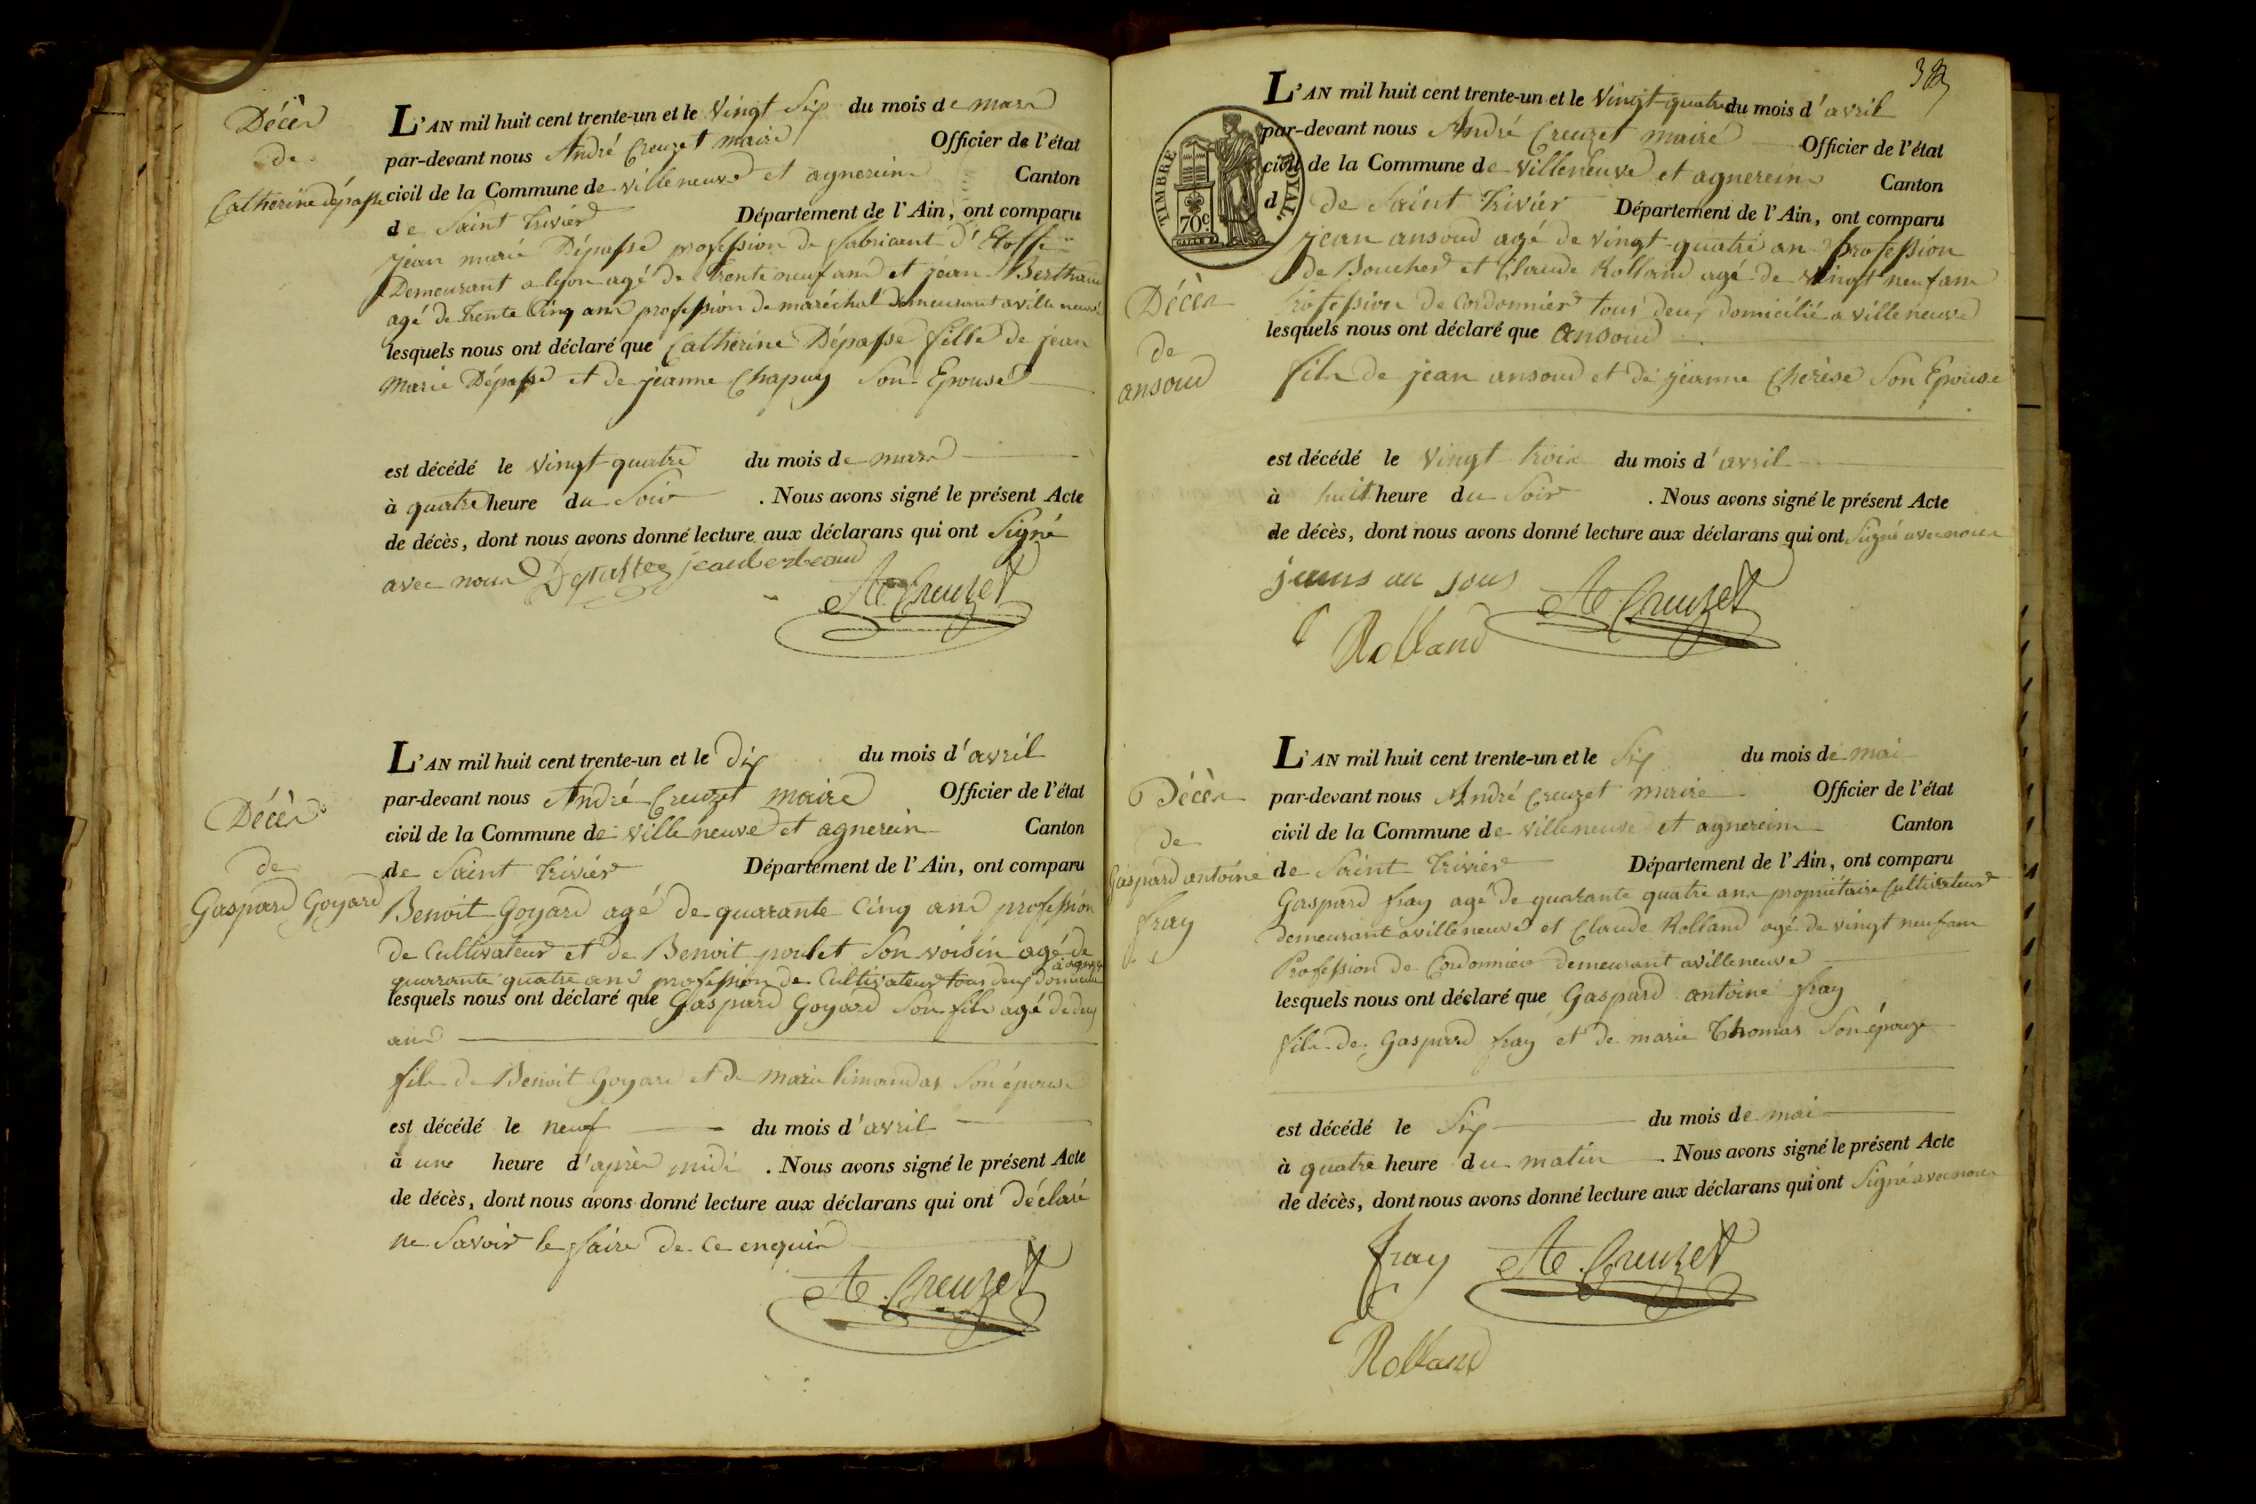 Décès
de
Catherine Dépasse
L'AN mil huit cent trente-un et le Vingt Six du mois de mars
par-devant nous André Creuzet maire Officier de l'état
civil de la Commune de villeneuve et agnereins Canton
de Saint Trivier Département de l'Ain, ont comparu
jean marie Dépasse profession de fabricant d'Etoffe
Demeurant a lyon agé de trente neuf ans et jean Berthaud
agé de trente Cinq ans profession de maréchal demeurant a villeneuve
lesquels nous ont déclaré que Catherine Dépasse fille de jean
Marie Dépasse et de jeanne Chapuy Son Epouse
est décédé le Vingt quatre du mois de mars
à quatre heure du Soir . Nous avons signé le présent Acte
de décès, dont nous avons donné lecture aux déclarans qui ont Signé
avec nous
Ae Creuzet
Décès
de
Gaspard Goyard
L'AN mil huit cent trente-un et le Dix du mois d'avril
par-devant nous André Creuzet maire Officier de l'état
civil de la Commune de villeneuve et agnerein Canton
de Saint Trivier Département de l'Ain, ont comparu
Benoit Goyard agé de quarante Cinq ans profession
de Cultivateur et de Benoit poulet Son voisin agé de
quarante quatre ans profession de Cultivateur tous deux
lesquels nous ont déclaré que Gaspard Goyard Son fils agé de deux
ans
fils de Benoit Goyard et de marie limandas Son épouse
est décédé le neuf du mois d'avril
à une heure d'après midi . Nous avons signé le présent Acte
de décès, dont nous avons donné lecture aux déclarans qui ont déclaré
ne Savoir le faire de ce enquis
Ae Creuzet
TIMBRE ROYAL
70c
L'AN mil huit cent trente-un et le Vingt-quatre du mois d'avril
par-devant nous André Creuzet maire Officier de l'état
civil de la Commune de villeneuve et agnereins Canton
d de Saint Trivier Département de l'Ain, ont comparu
jean ansoud agé de vingt-quatre an Profession
de Boucher et Claude Rolland agé de vingt neuf ans
Profession de Cordonnier tous deux domicilié a villeneuve
Décès
de
ansoud
lesquels nous ont déclaré que ansoud
fils de jean ansoud et de jeanne Cherese Son Epouse
est décédé le Vingt trois du mois d'avril
à huit heure du Soir . Nous avons signé le présent Acte
de décès, dont nous avons donné lecture aux déclarans qui ont Signé avec nous
Ae Creuzet
Rolland
Décès
de
Gaspard antoine
fray
L'AN mil huit cent trente-un et le Six du mois de mai
par-devant nous André Creuzet maire Officier de l'état
civil de la Commune de villeneuve et agnereins Canton
de Saint Trivier Département de l'Ain, ont comparu
Gaspard fray agé de quarante quatre ans propriétaire Cultivateur
demeurant à villeneuve et Claude Rolland agé de vingt neuf ans
Profession de Cordonnier demeurant a villeneuve
lesquels nous ont déclaré que Gaspard antoine fray
fils de Gaspard fray et de marie Thomas Son épouze
est décédé le Six du mois de mai
à quatre heure du matin . Nous avons signé le présent Acte
de décès, dont nous avons donné lecture aux déclarans qui ont Signé avec nous
fray Ae Creuzet
Rolland